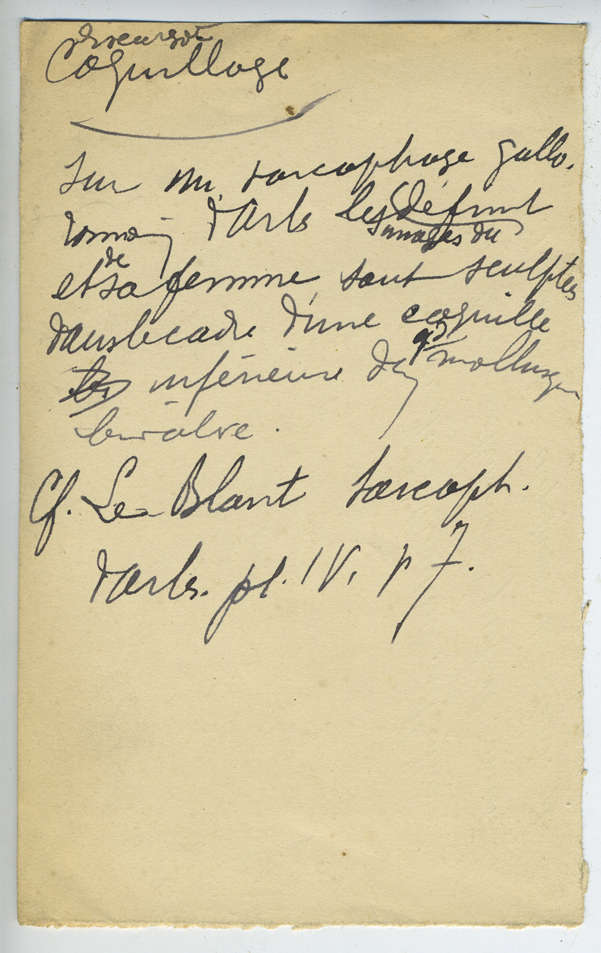 Escargot
Coquillage
Sur un sarcophage gallo-
romain d'Arles les images du défunt
et de sa femme sont sculptés
dans le cadre d'une coquille
inférieure d'un gd mollusque
bivalve.
Cf. Le Blant Sarcoph.
d'Arles. pl. IV, p 7.